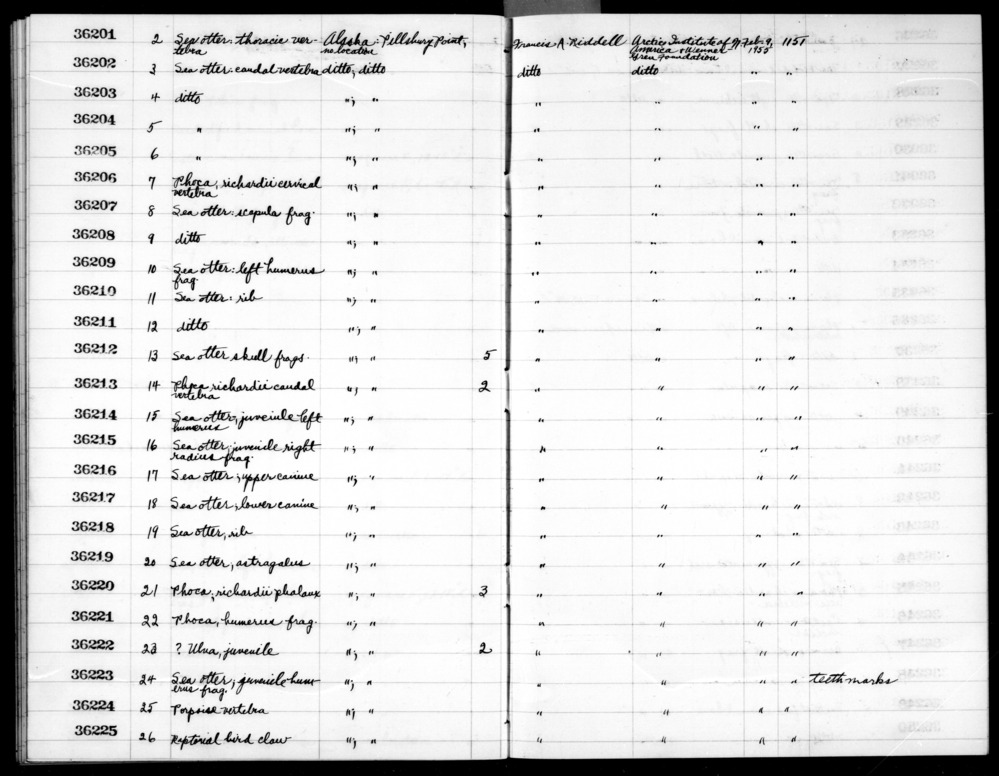 36201 2 Sea otter: thoracic ver- Alaska: Pillsbury Point, Francis A. Riddell Arctic Institute of N. Feb. 9, 1151
tebra no location America & Wenner 1955
Gren Foundation
36202 3 Sea otter: caudal vertebra ditto; ditto ditto ditto " "
36203 4 ditto "; " " " " "
36204 5 " "; " " " " "
36205 6 " "; " " " " "
36206 7 Phoca, richardii cervical "; " " " " "
vertebra
36207 8 Sea otter: scapula frag. "; " " " " "
36208 9 ditto "; " " " " "
36209 10 Sea otter: left humerus "; " " " " "
frag.
36210 11 Sea otter: rib "; " " " " "
36211 12 ditto "; " " " " "
36212 13 Sea otter skull frags. "; " 5 " " " "
36213 14 Phoca richardii caudal "; " 2 " " " "
vertebra
36214 15 Sea otter, juvenile left "; " " " " "
humerus
36215 16 Sea otter, juvenile right "; " " " " "
radius frag.
36216 17 Sea otter, upper canine "; " " " " "
36217 18 Sea otter, lower canine "; " " " " "
36218 19 Sea otter, rib "; " " " " "
36219 20 Sea otter, astragalus "; " " " " "
36220 21 Phoca, richardii phalanx "; " 3 " " " "
36221 22 Phoca, humerus frag. "; " " " " "
36222 23 ? Ulna, juvenile "; " 2 " " " "
36223 24 Sea otter, juvenile hum- "; " " " " " teeth marks
erus frag.
36224 25 Porpoise vertebra "; " " " " "
36225 26 Raptorial bird claw "; " " " " "